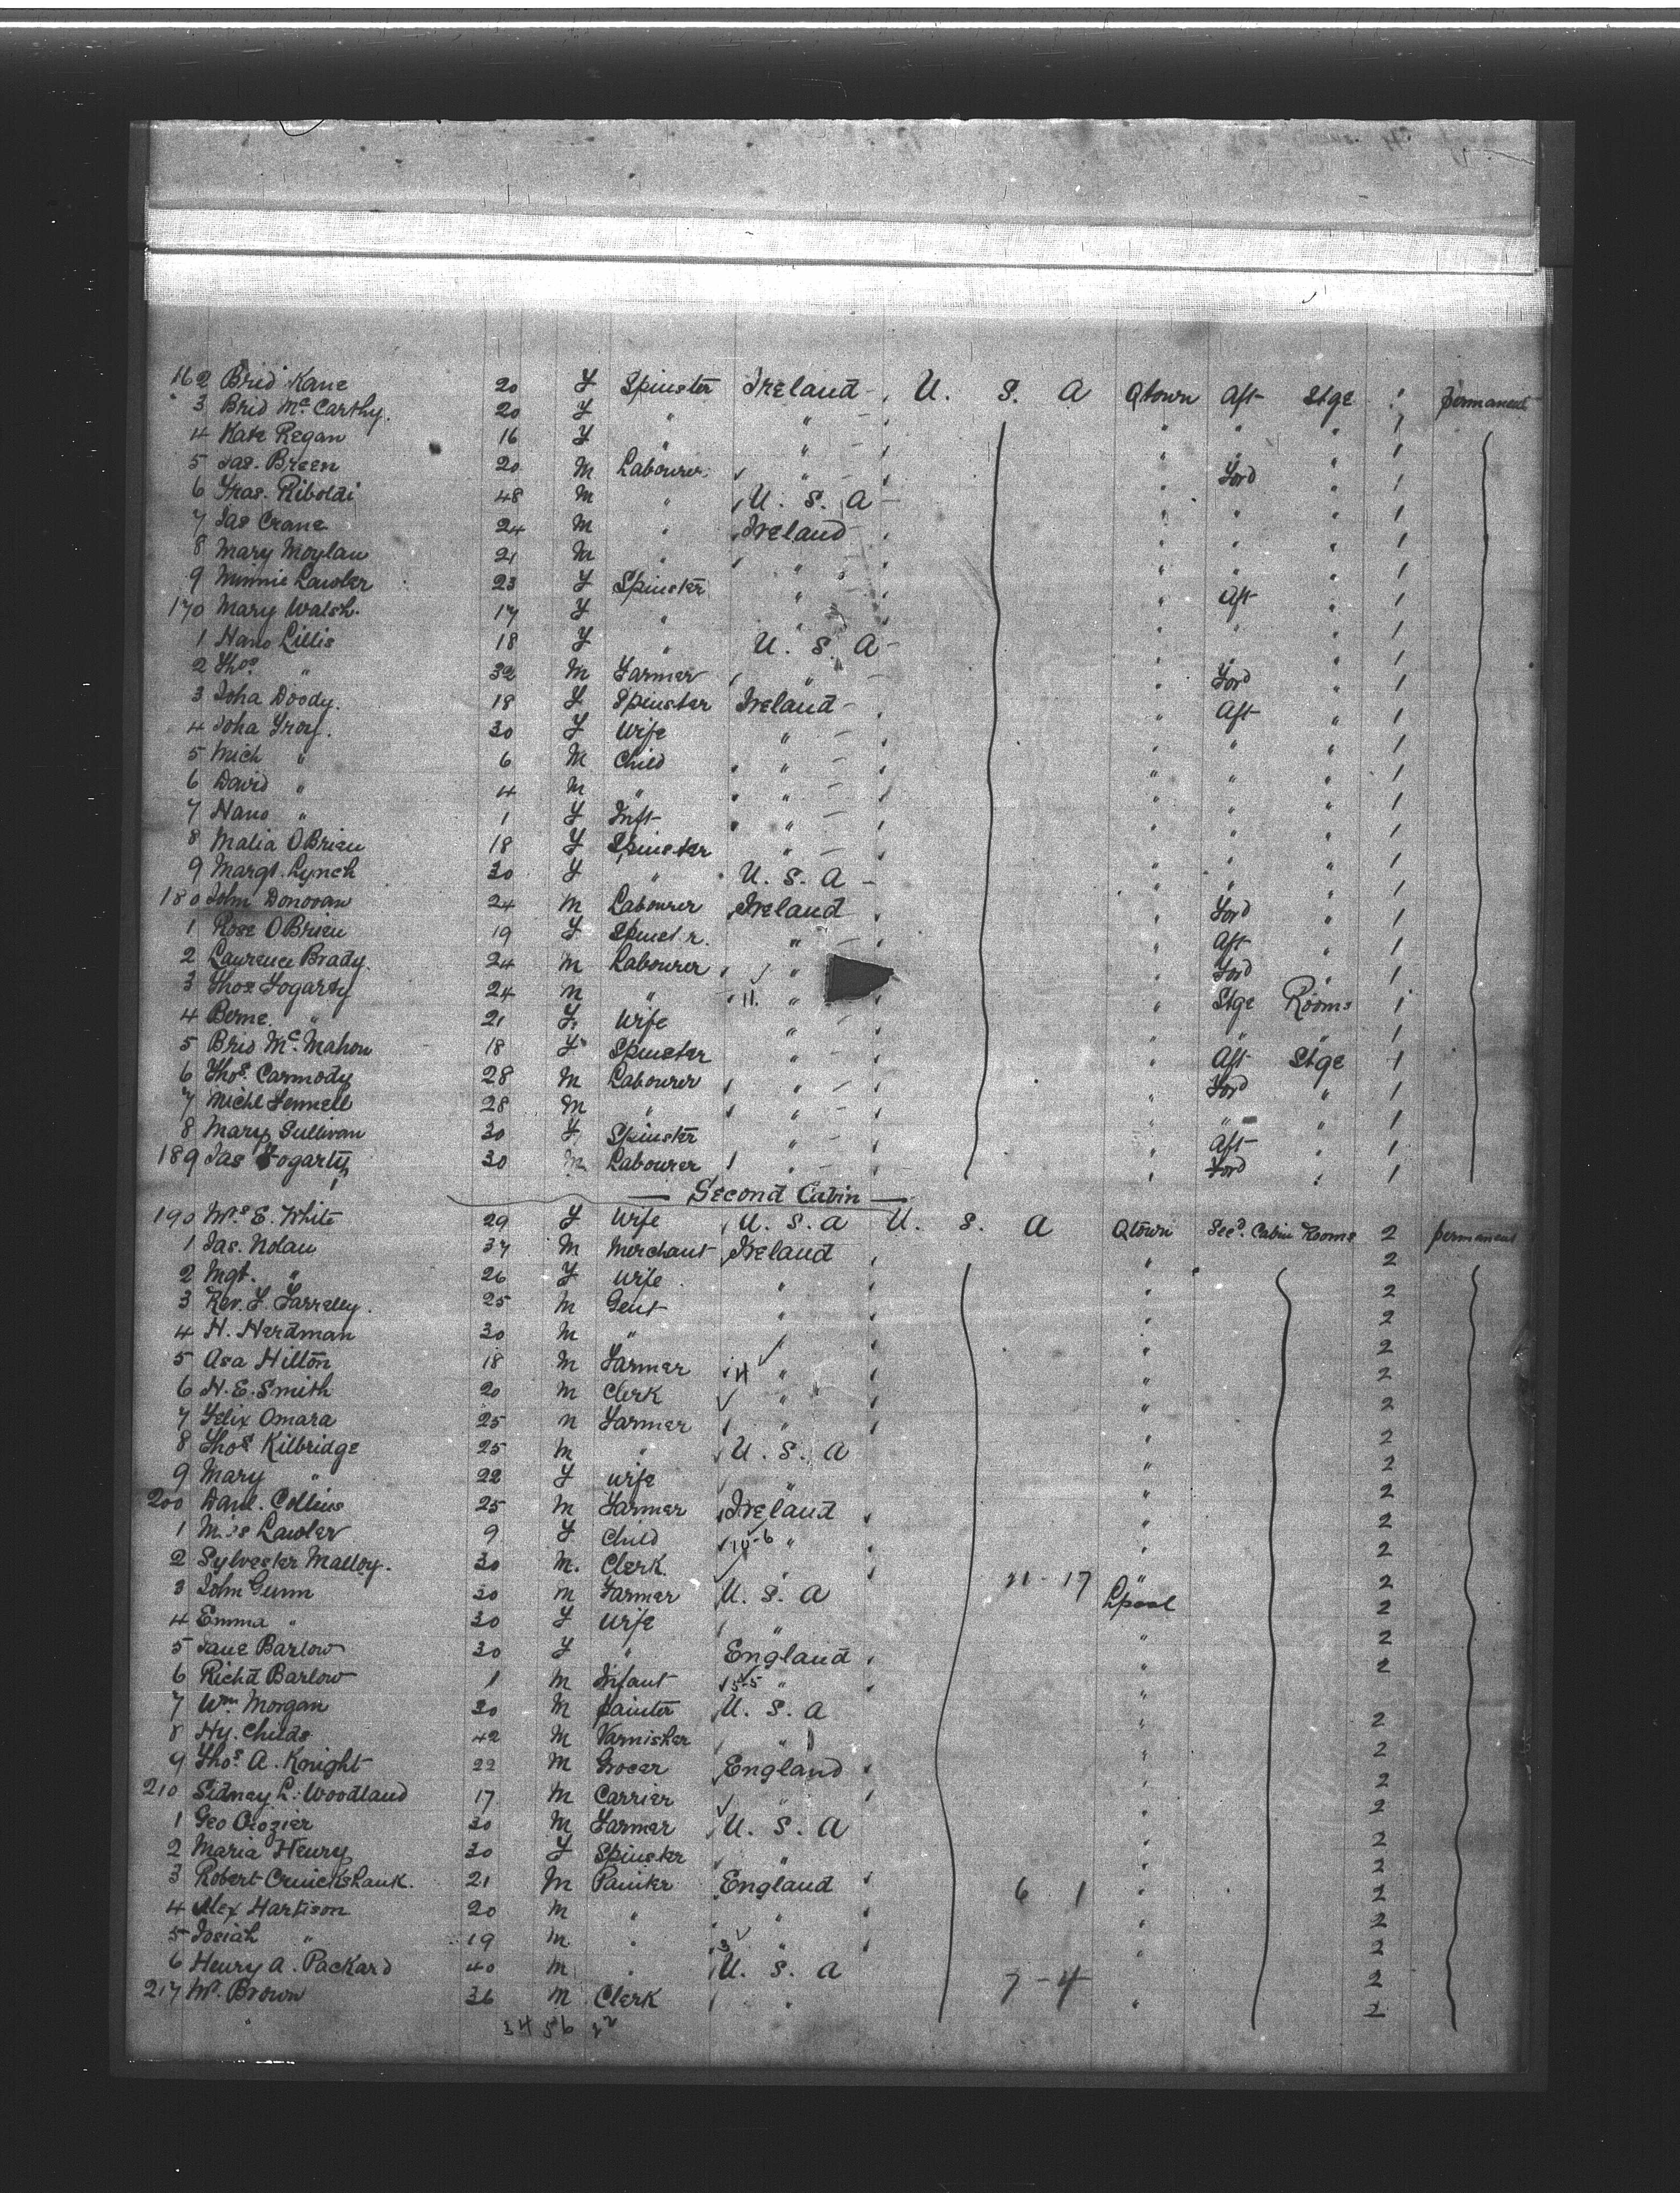 162 Brid Kane 20 F Spinster Ireland U. S. A Qtown Aft Stge 1 permanent
3 Brid McCarthy. 20 F " " " " " 1
4 Kate Regan 16 F " " " " " 1
5 Jas. Breen 20 M Labourer " " Ford " 1
6 Fras. Riboldi 48 M " U. S. A " " " 1
7 Jas Crane 24 M " Ireland " " " 1
8 Mary Moylan 21 M " " " " " 1
9 Minnie Lawler 23 F Spinster " " Aft " 1
170 Mary Walsh. 17 F " " " " " 1
1 Nano Lillis 18 F " U. S. A " " " 1
2 Thos " 32 M Farmer " " Ford " 1
3 Joha Doody. 18 F Spinster Ireland " Aft " 1
4 Joha Troy. 30 F Wife " " " " 1
5 Mich " 6 M Child " " " " 1
6 David " 4 M " " " " " 1
7 Nano " 1 F Inft " " " " 1
8 Malia OBrien 18 F Spinster " " " " 1
9 Margt. Lynch 30 F " U. S. A " " " 1
180 John Donovan 24 M Labourer Ireland " Ford " 1
1 Rose OBrien 19 F Spinst r. " " Aft " 1
2 Laurence Brady. 24 M Labourer " " Ford " 1
3 Thos Fogarty 24 M " 11. " " Stge Rooms 1
4 Berne. " 21 F. Wife " " " " 1
5 Brid McMahon 18 F Spinster " " Aft Stge 1
6 Thos. Carmody 28 M Labourer " " Ford " 1
7 Michl Fennell 28 M " " " " " 1
8 Mary Sullivan 30 F Spinster " " Aft " 1
189 Jas Fogarty 30 M Labourer " " Ford " 1
— Second Cabin —
190 Mrs E. White 29 F Wife U. S. A U. S. A Qtown Secd. Cabin Rooms 2 permanent
1 Jas. Nolan 37 M Merchant Ireland " 2
2 Mgt. " 26 F Wife " " 2
3 Rev. F. Farrelly. 25 M Gent " " 2
4 H. Herdman 30 M " " " 2
5 Asa Hilton 18 M Farmer 14 " " 2
6 H. E. Smith 20 M Clerk " " 2
7 Felix Omara 25 M Farmer " " 2
8 Thos Kilbridge 25 M " U. S. A " 2
9 Mary " 22 F Wife " " 2
200 Danl. Collins 25 M Farmer Ireland " 2
1 Miss Lawler 9 F Child 10-6 " " 2
2 Sylvester Malloy. 30 M. Clerk. " " 2
3 John Gunn 30 M Farmer U. S. A 21-17 Lpool 2
4 Emma " 30 F Wife " " 2
5 Jane Barlow 30 F " England " 2
6 Richd Barlow 1 M Infant 5-5 " "
7 Wm. Morgan 30 M Painter U. S. A " 2
8 Hy. Childs 42 M Varnisher " " 2
9 Thos. A. Knight 22 M Grocer England " 2
210 Sidney L. Woodland 17 M Carrier " " 2
1 Geo Crozier 30 M Farmer U. S. A " 2
2 Maria Henry 30 F Spinster " " 2
3 Robert Cruickshank. 21 M Painter England 6 1 " 2
4 Alex Harkison 20 M " " " 2
5 Josiah " 19 M " 3 " " 2
6 Henry A. Packard 40 M " U. S. A 7-4 2
217 Mr. Brown 36 M Clerk " " 2
34 56 22